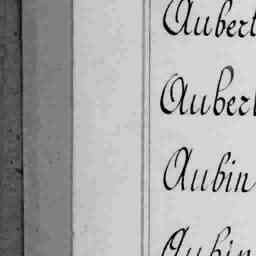 Aubert
Auber
Aubin
Aubin